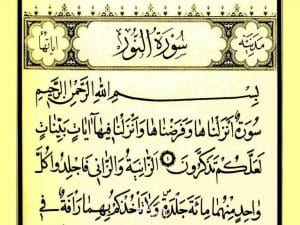 مدنية سورة النور آياتها
بسم الله الرحمن الرحيم
سورة أنزلناها وفرضناها وأنزلنا فيها آيات بينات
لعلكم تذكرون ١ الزانية والزاني فاجلدوا كل
واحد منهما مائة جلدة ولا تأخذكم بهما رأفة في